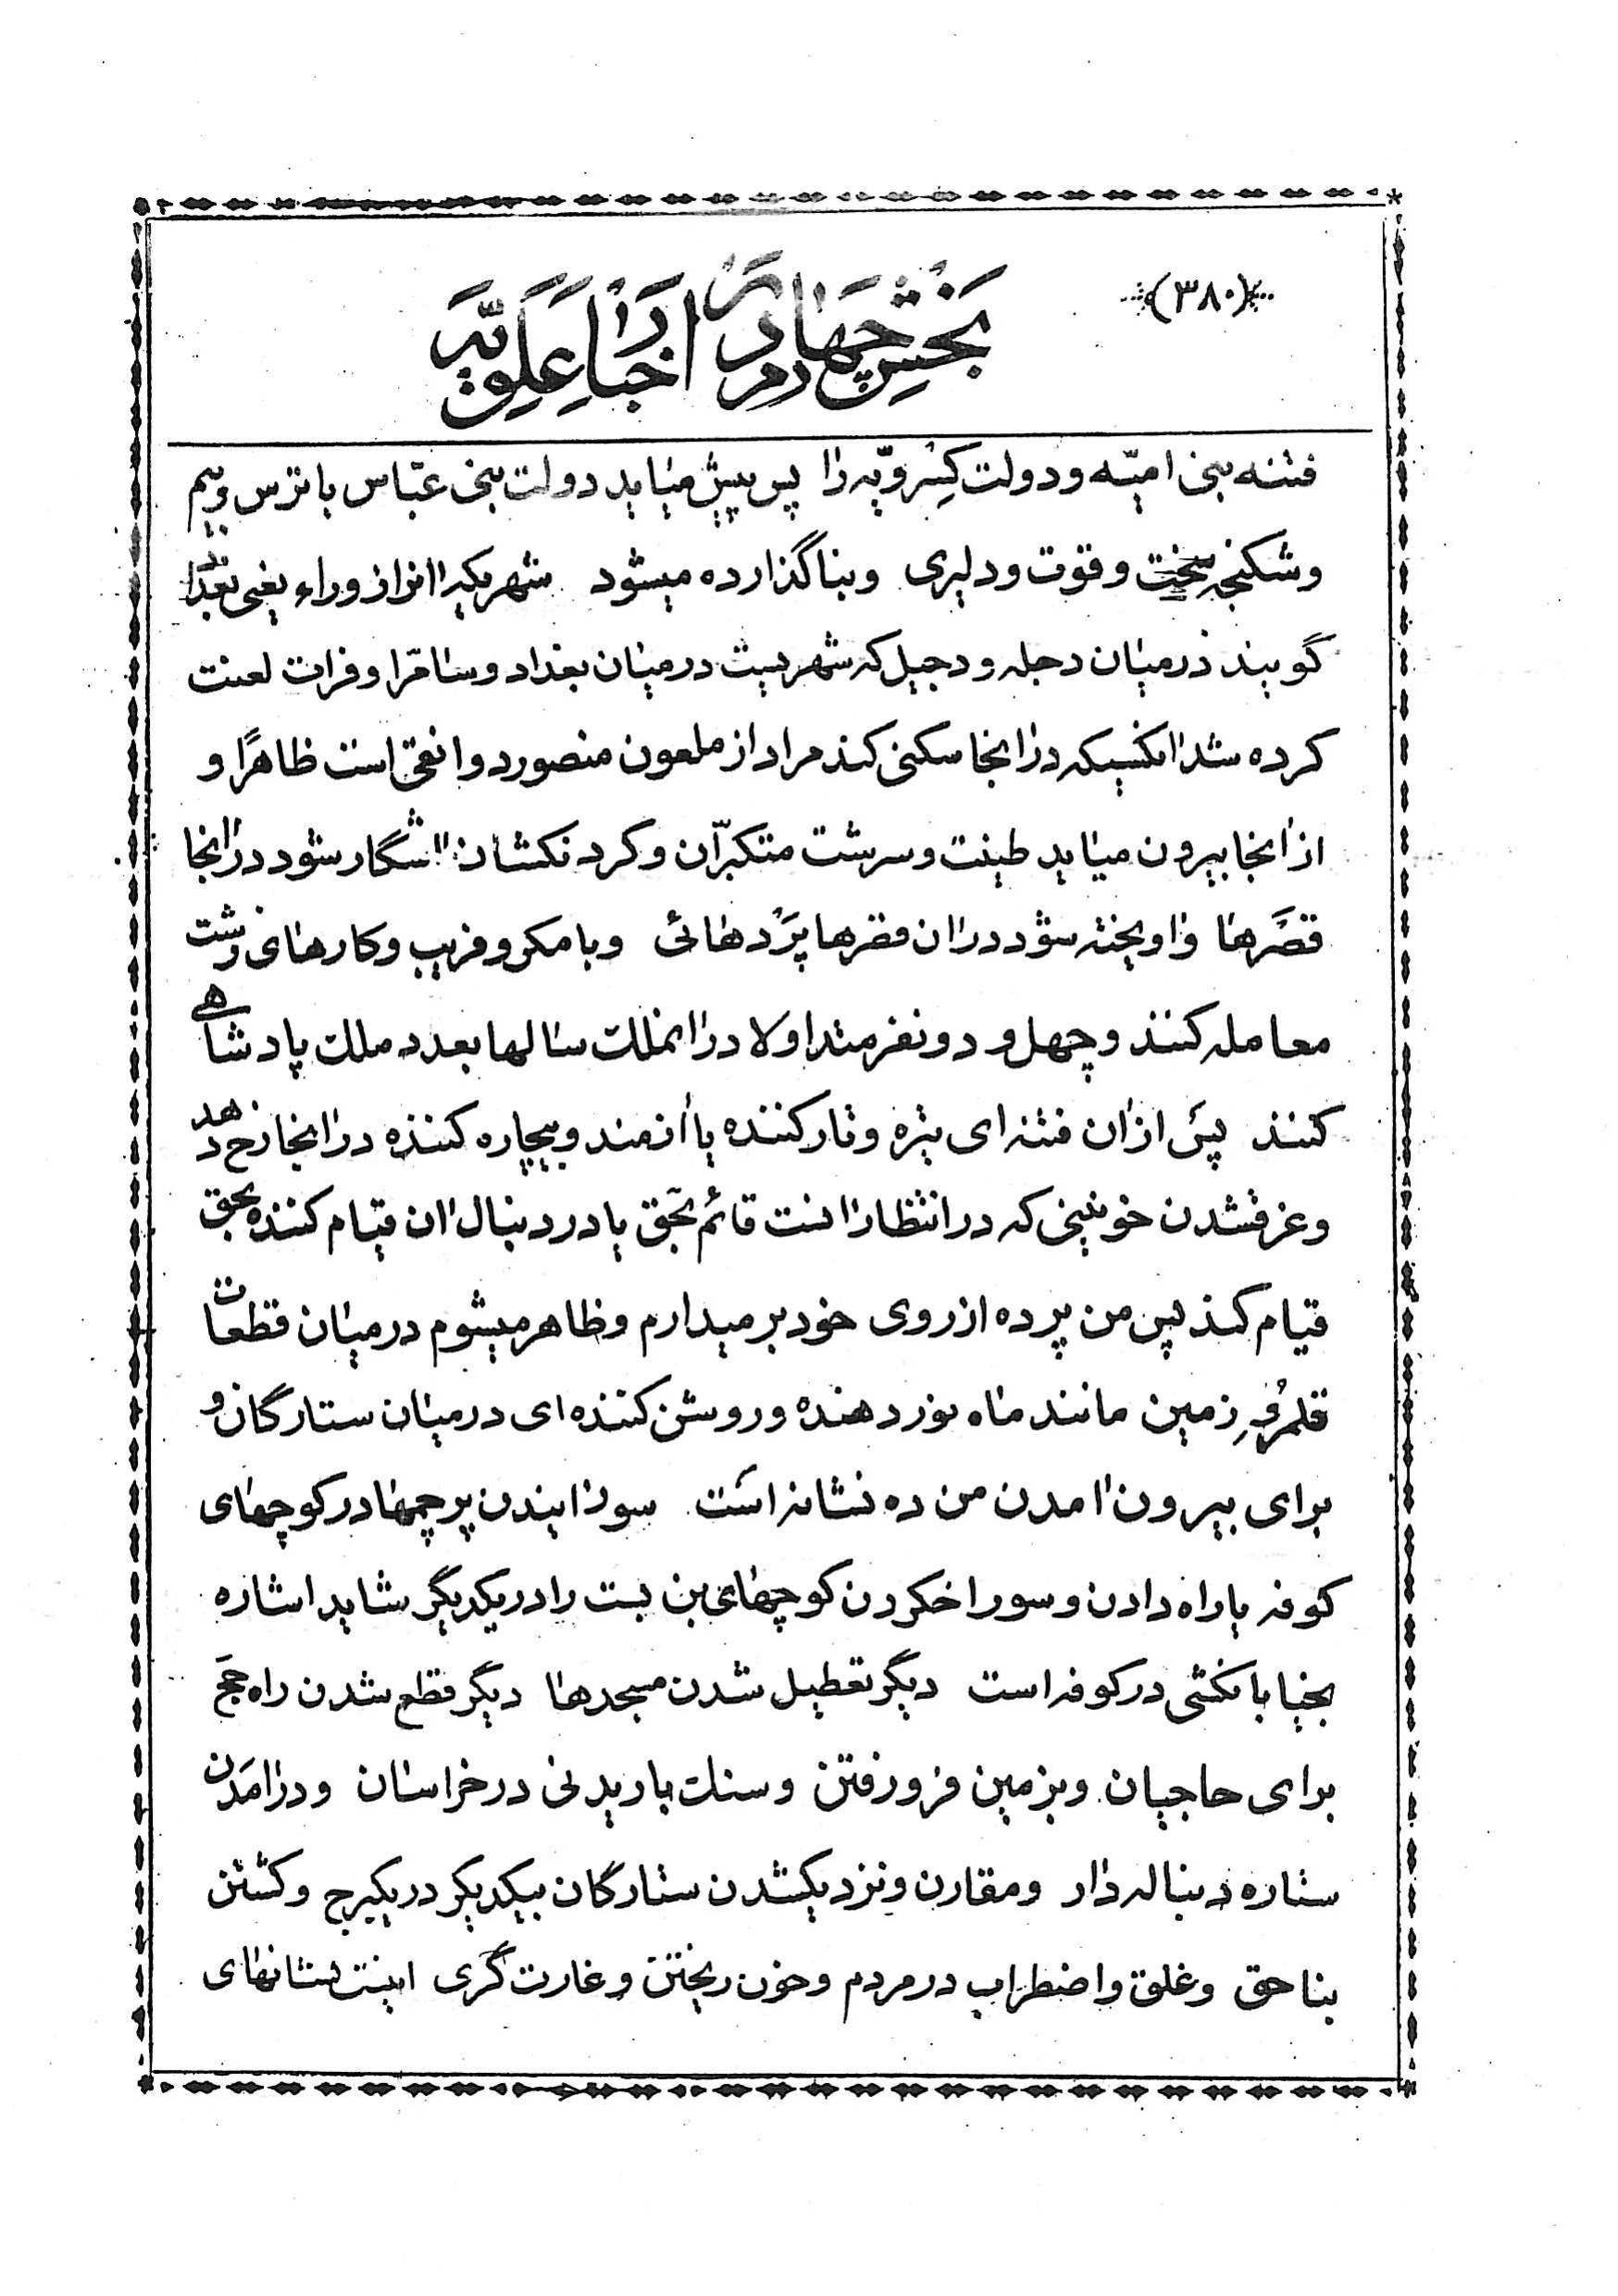 (۳۸۰)
بخش چهارم در اخبار علویه
فتنه بنی امیّه و دولت کِسرویّه را پس پیش میاید دولت بنی عبّاس با ترس و بیم
و شکنجه سخت و قوت و دلیری و بنا گذارده میشود شهریکه انرا زوراء یعنی بغداد
گویند در میان دجله و دجیل که شهریست در میان بغداد و سامرّا و فرات لعنت
کرده شد انکسیکه در انجا سکنی کند مراد از ملعون منصور دوانقی است ظاهرًا و
از انجا بیرون میاید طینت و سرشت متکبرّان و گردنکشان اشگار شود در انجا
قصَرها و اویخته شود در ان قصرها پَرْدهائی و با مکر و فریب و کارهای زشت
معامله کنند و چهل و دو نفر از اولاد در انملک سالها بعدد ملک پادشاهی
کنند پس از ان فتنه ای تیره و تار کننده یا ازمند و بیچاره کننده در انجا رخ دهد
و غرقشدن خونینی که در انتظار انست قائم بحق یا در دنبال ان قیام کننده بحق
قیام کند پس من پرده از روی خود بر میدارم و ظاهر میشوم در میان قطعات
قلمرُوِ زمین مانند ماه نور دهنده و روشن کننده ای در میان ستارگان و
برای بیرون امدن من ده نشانه است سوزانیدن پرچمها در کوچهای
کوفه یا راه دادن و سوراخکردن کوچهای بن بست را در یکدیگر شاید اشاره
بخیابانکشی در کوفه است دیگر تعطیل شدن مسجدها دیگر قطع شدن راه حجّ
برای حاجیان و بزمین فرو رفتن و سنک باریدنی در خراسان و در امدن
ستاره دنباله دار و مقارن و نزدیکشدن ستارگان بیکدیگر در یکبرج و کشتن
بناحق و غلق و اضطراب در مردم و خون ریختن و غارت گری اینست نشانهای